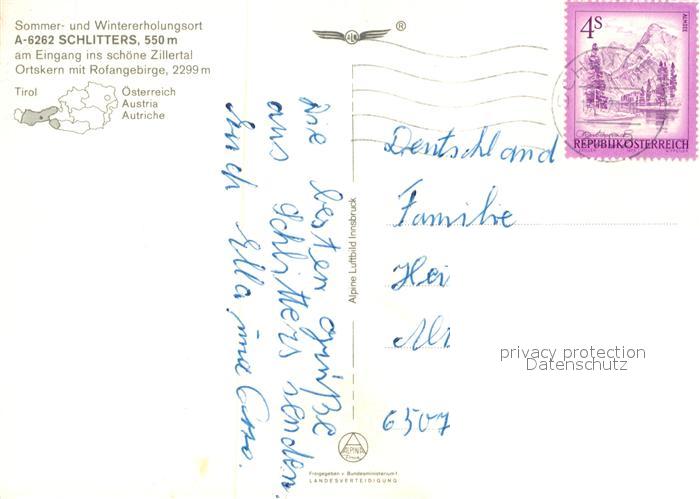 Sommer- und Wintererholungsort
A-6262 SCHLITTERS, 550 m
am Eingang ins schöne Zillertal
Ortskern mit Rofangebirge, 2299 m
Tirol
Österreich
Austria
Autriche
®
4S
ALMSEE
REPUBLIK ÖSTERREICH
Die besten Grüße
aus Schlitters senden
Euch Ella, und Otto.
Alpine Luftbild Innsbruck
Deutschland
Familie
Hei
6507
privacy protection
Datenschutz
ALPINE
Freigegeben v. Bundesministerium f.
LANDESVERTEIDIGUNG